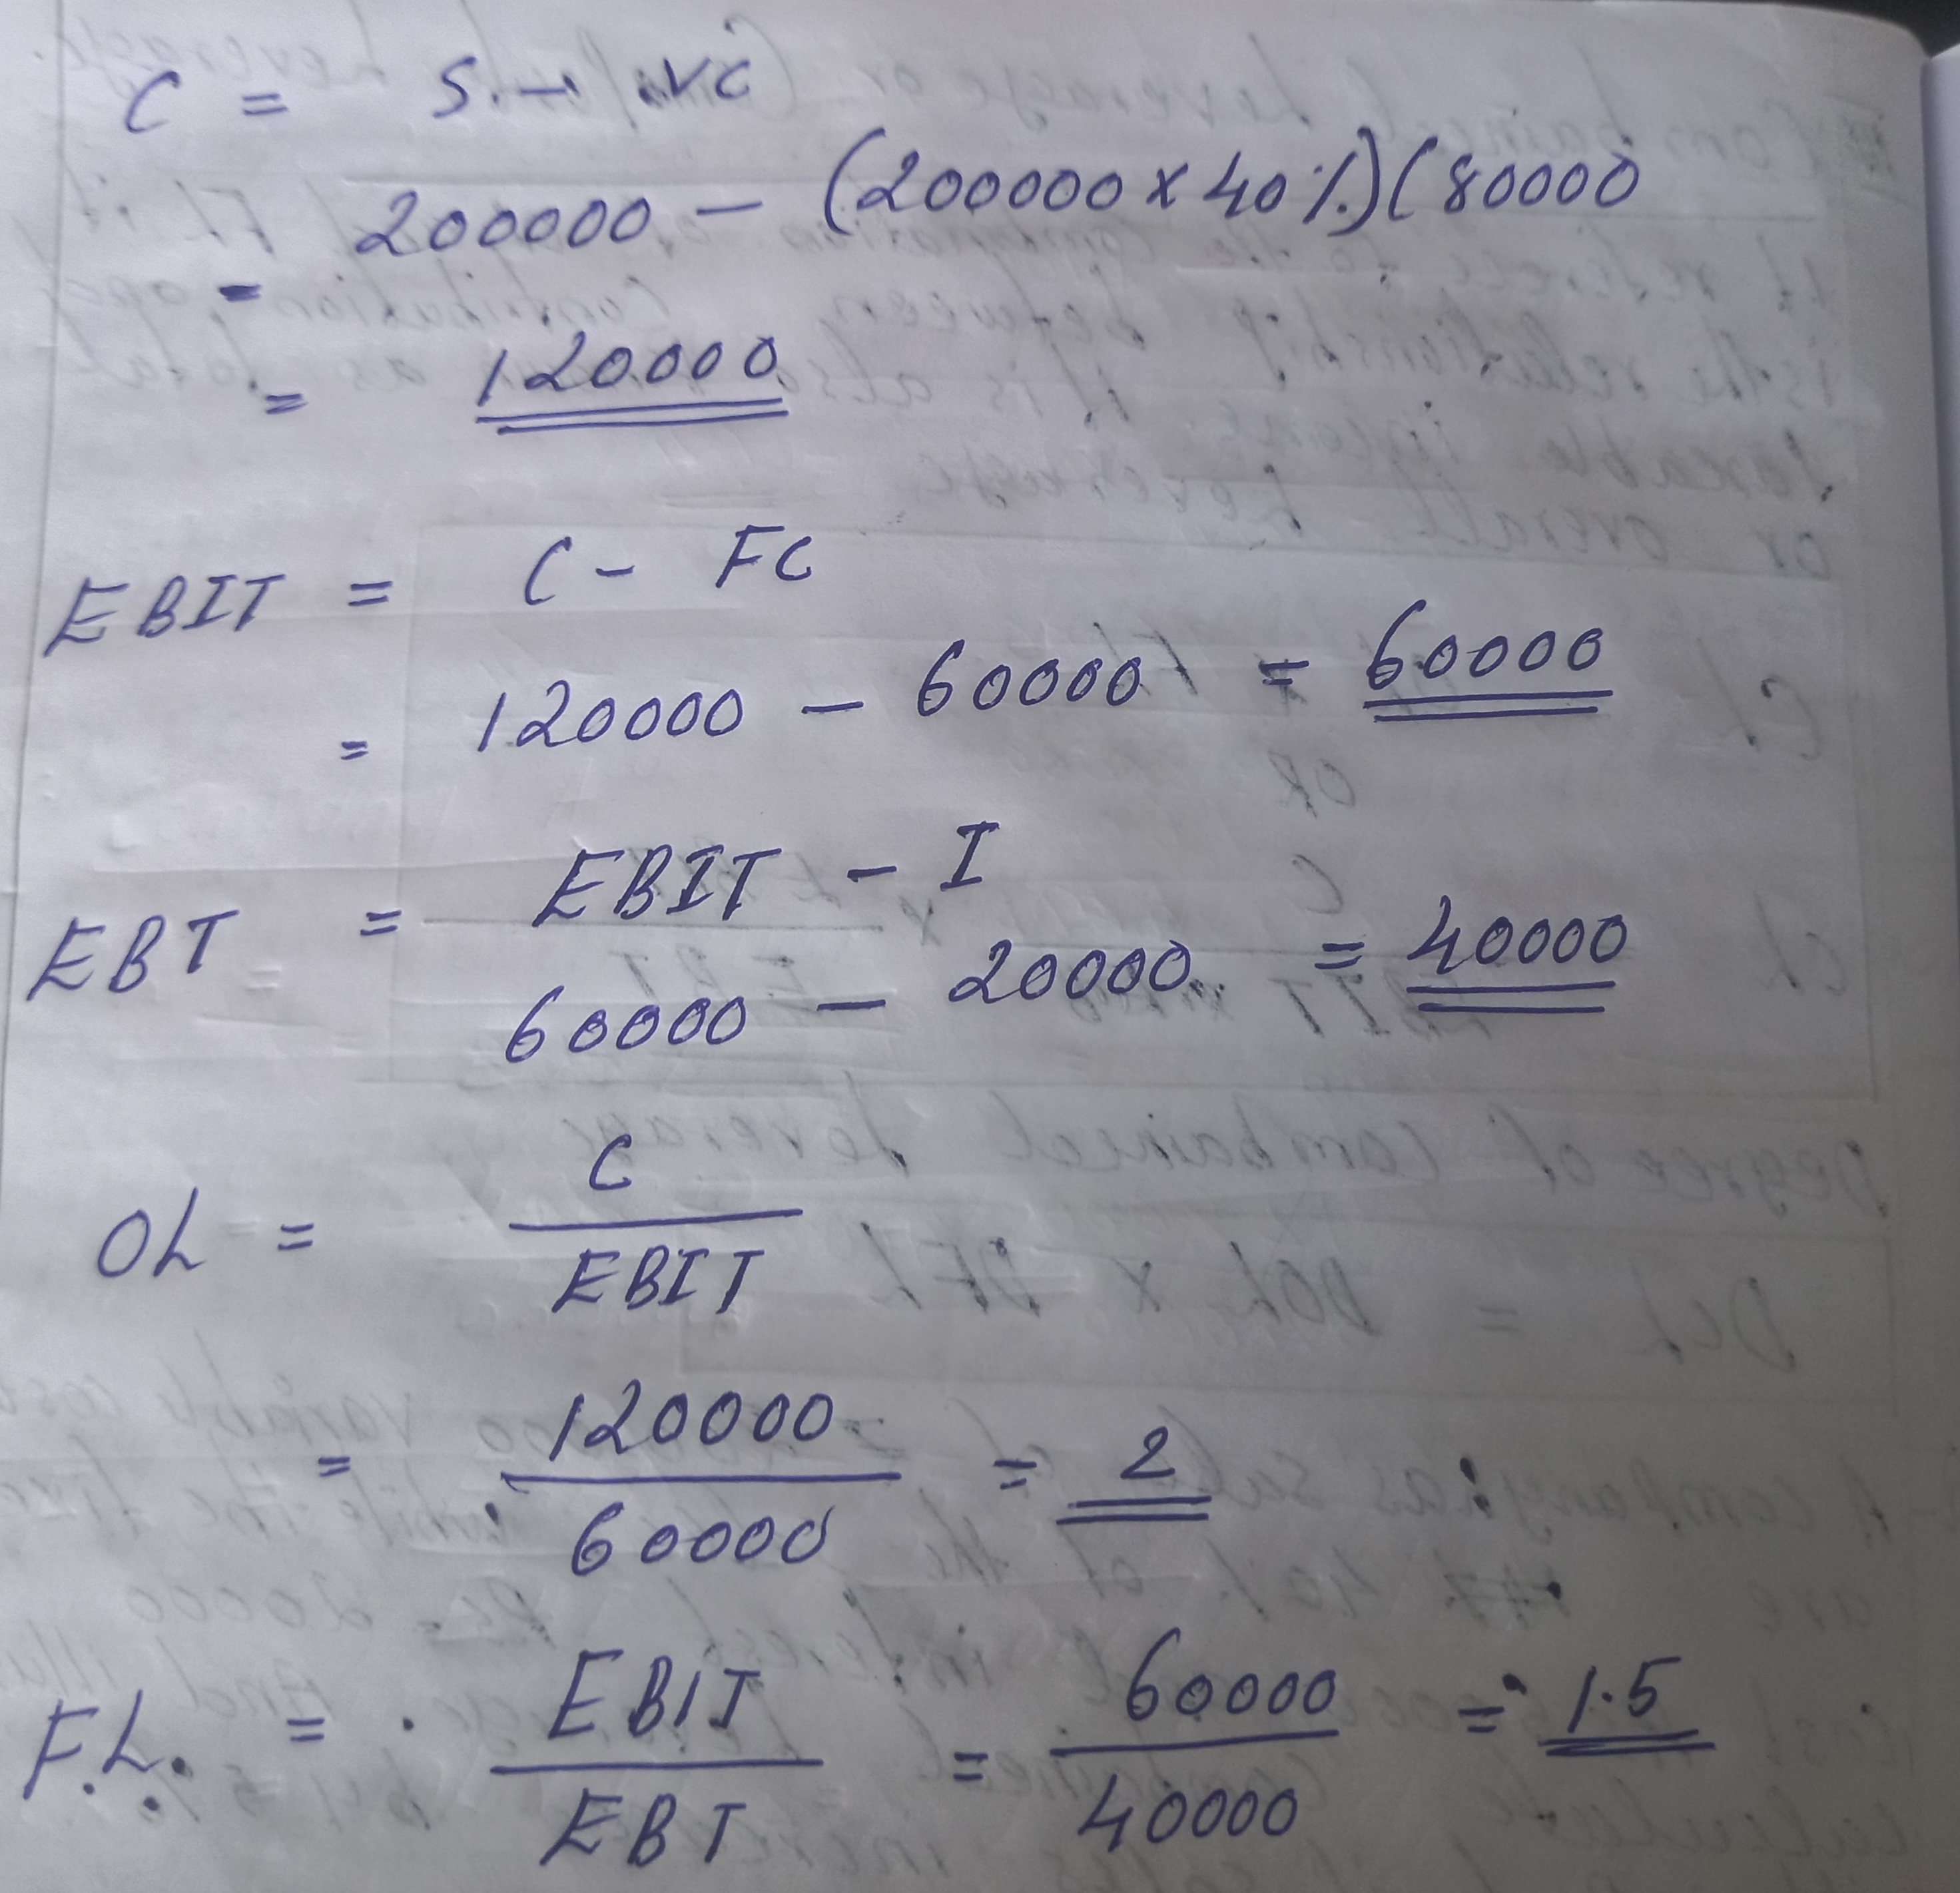 C = S - VC
200000 - (200000 x 40%) (80000
=
= 120000
EBIT = C - FC
= 120000 - 60000 = 60000
EBT = EBIT - I
60000 - 20000 = 40000
OL = C
EBIT
= 120000 = 2
60000
F.L. = EBIT = 60000 = 1.5
EBT 40000